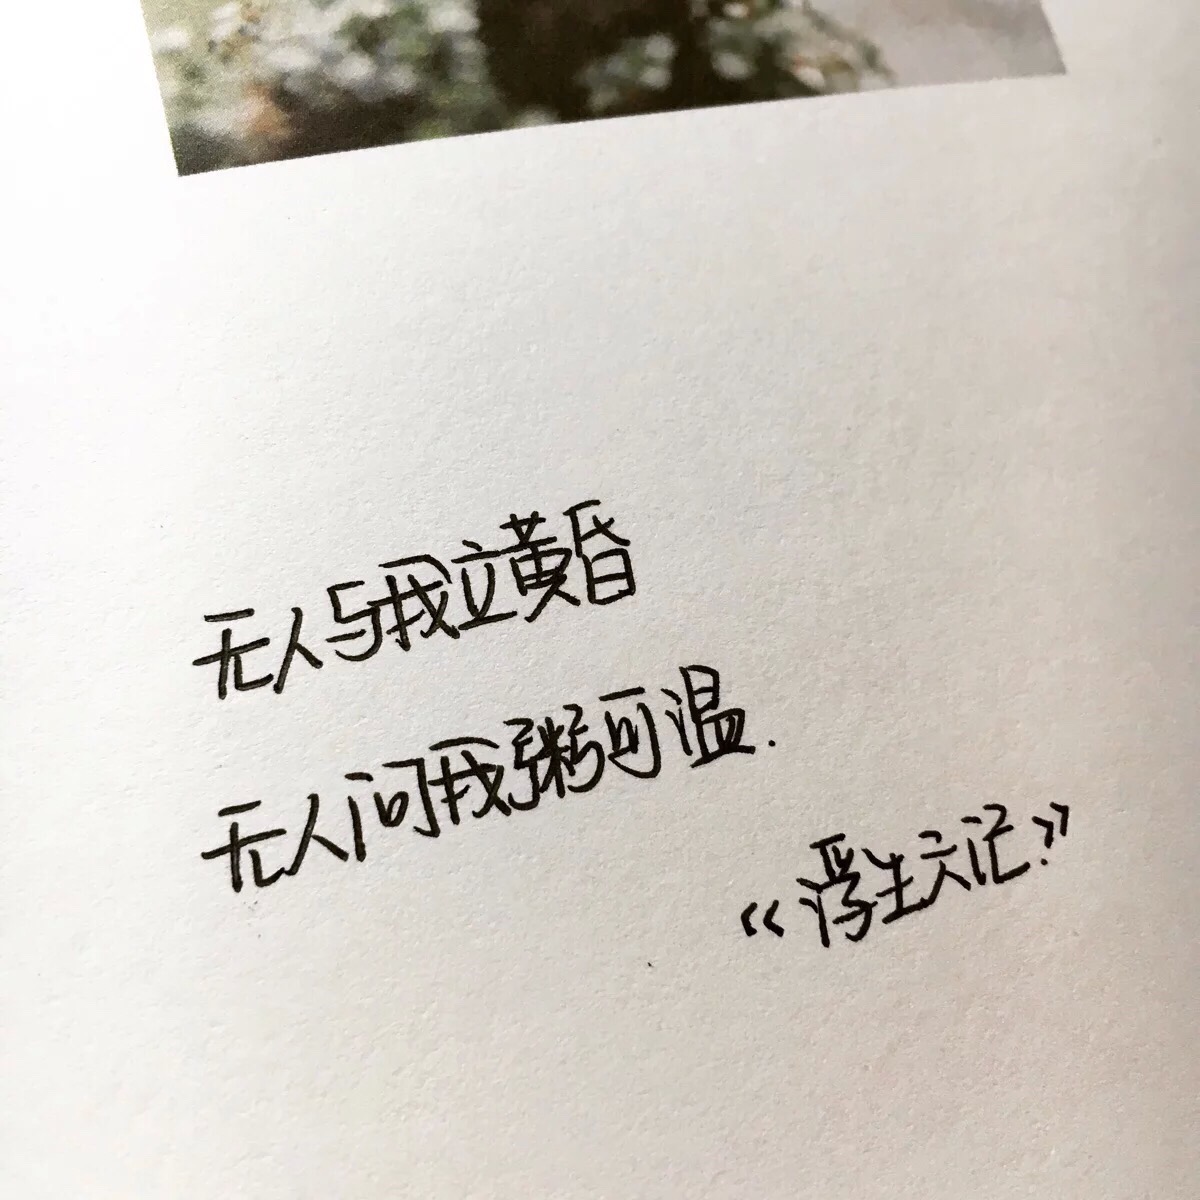 无人与我立黄昏
无人问我粥可温.
《浮生六记》